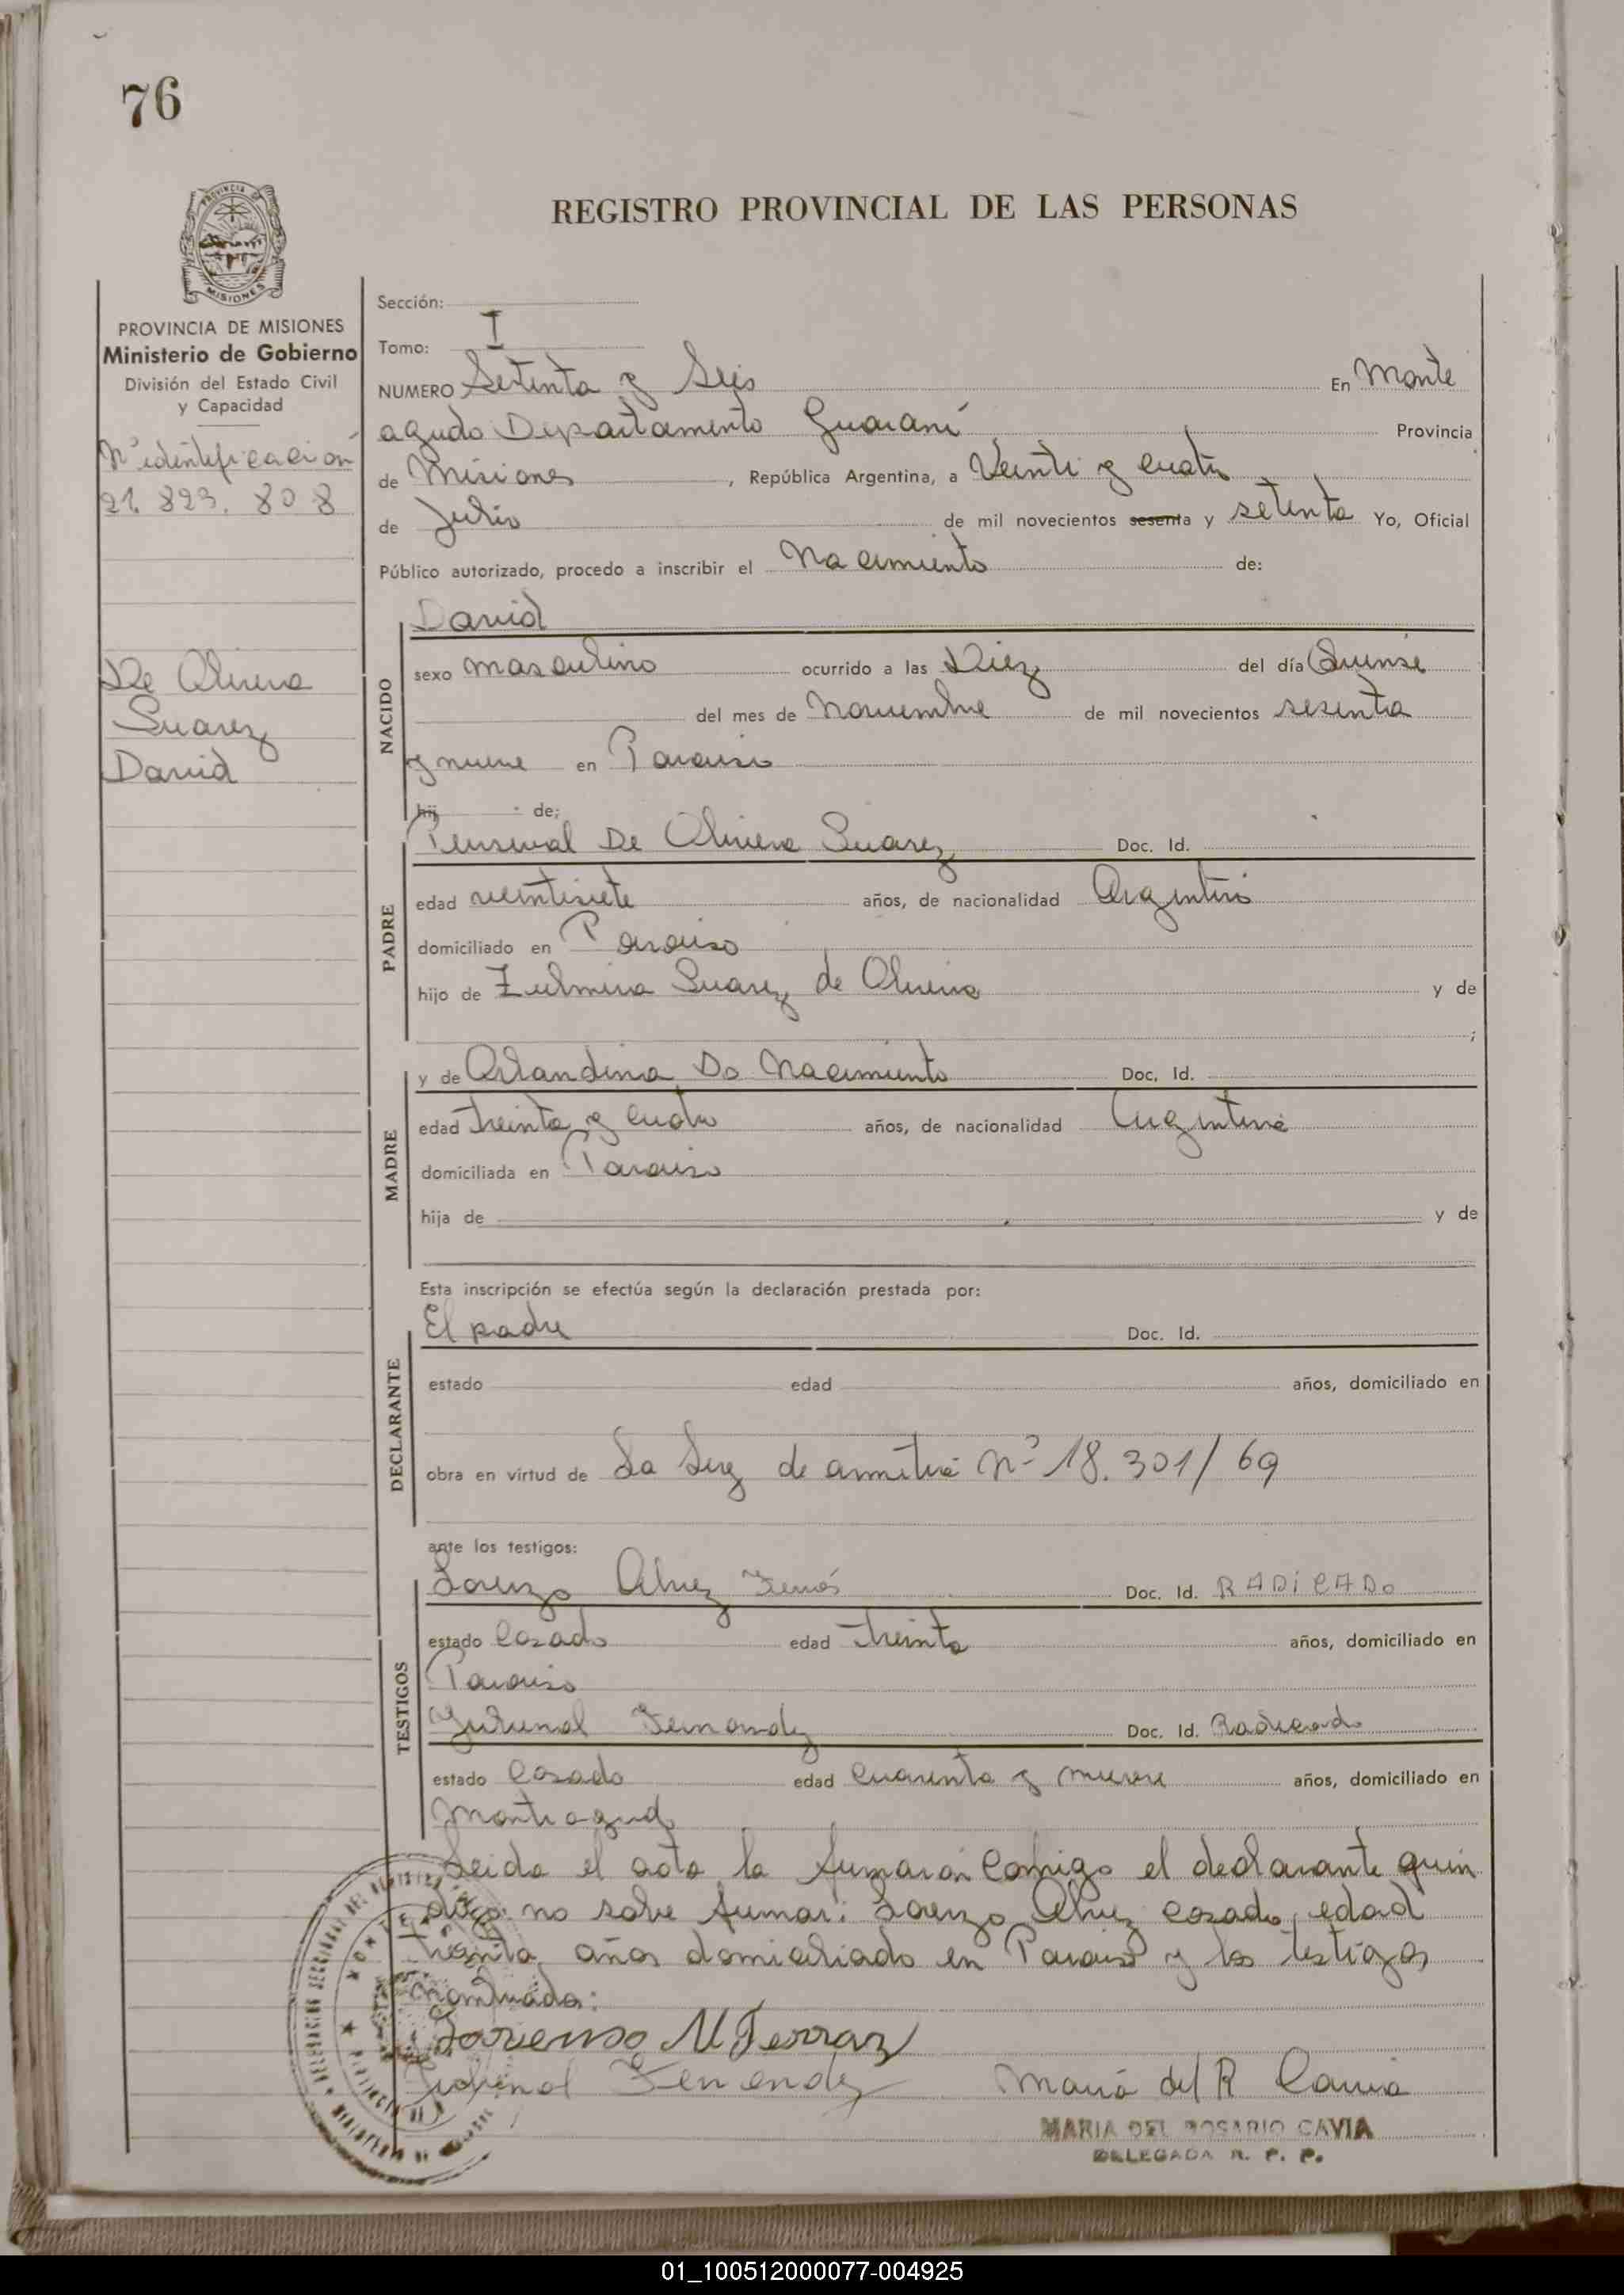 76
PROVINCIA DE
MISIONES
REGISTRO PROVINCIAL DE LAS PERSONAS
PROVINCIA DE MISIONES
Ministerio de Gobierno
División del Estado Civil
y Capacidad
Nº identificación
21.823.808
De Olivera
Suarez
David
Sección:
Tomo: I
NUMERO Setenta y Seis En Monte
agudo Departamento Guaraní Provincia
de Misiones, República Argentina, a Veinti y cuatro
de Julio de mil novecientos sesenta y setenta Yo, Oficial
Público autorizado, procedo a inscribir el Nacimiento de:
NACIDO
David
sexo masculino ocurrido a las Diez del día Quinse
del mes de Noviembre de mil novecientos sesenta
y nueve en Paraiso
hij de;
PADRE
De Olivera Suarez Doc. Id.
edad veintisiete años, de nacionalidad Argentino
domiciliado en Paraiso
hijo de Zulmira Suarez de Olivera y de
;
MADRE
y de Orlandina Do Nacimiento Doc. Id.
edad treinta y cuatro años, de nacionalidad Argentina
domiciliada en Paraiso
hija de y de
Esta inscripción se efectúa según la declaración prestada por:
DECLARANTE
El padre Doc. Id.
estado edad años, domiciliado en
obra en virtud de La Ley de Nº 18.301/69
ante los testigos:
TESTIGOS
Lorenzo Doc. Id. RADiCADo
estado Casado edad treinta años, domiciliado en
Paraiso
Fernandez Doc. Id. Radicado
estado Casado edad cuarenta y nueve años, domiciliado en
Monteagudo
Leida el acta la firmaron Comigo el declarante quien
no sabe firmar: Lorenzo casado, edad
treinta años domiciliado en Paraiso y los testigos
nombrados:
Lorenso M Ferraz
María del R Cavia
MARIA DEL ROSARIO CAVIA
DELEGADA R. P. P.
01_100512000077-004925